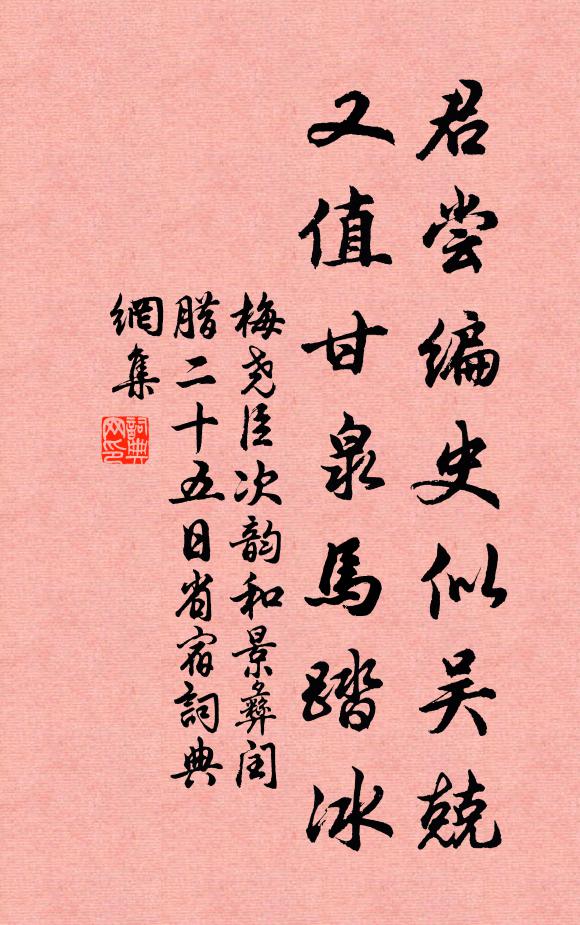 君尝编史似吴兢
又值甘泉馬踏冰
梅尧臣次韵和景彝闰
腊二十五日省宿詞典
網集
詞典
网印